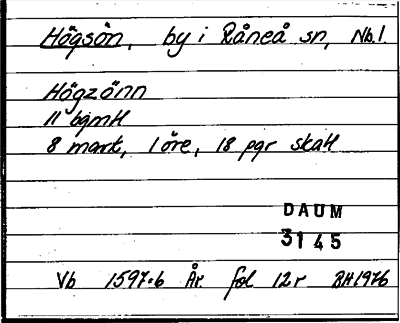 Högsön, by i Råneå sn, Nb.l.
Högzönn
11 bgmH
8 mark, 1 öre, 18 pgr skatt
DAUM
3145
Vb 1597:6 År fol 12r BH1976